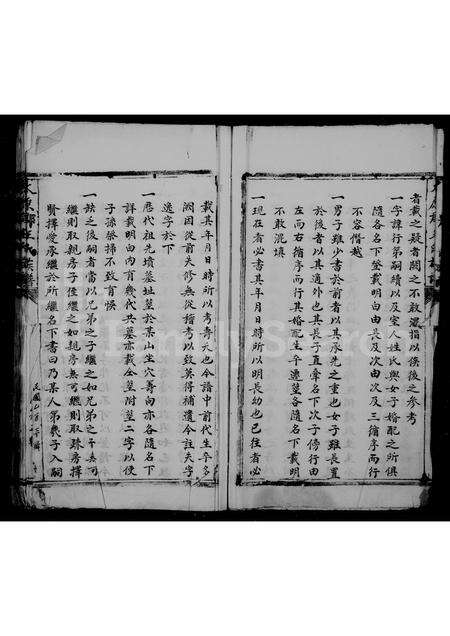 者載之疑者闕之不敢濫指以俟後之參考
一字諱行第嗣續以及室人姓氏與女子婚配之所俱
隨各名下登載明白由長及次由次及三循序而
不容僭越
一男子雖少書於前者以其承先之重也女子雖長置
於後者以其適外也其長子直牽名下次子傍行由
左而右循序而行其婚配生卒遷塟各隨名下載明
不敢混填
一現在者必書其年月日時所以明長幼也已往者必
載其年月日時所以考壽夭也今譜中前代生卒多
湖因從前失修無從稽考以致莫得補遺今註失字
逸字於下
一歷代祖先墳墓址塟於某山坐穴壽向亦各隨名下
詳載明白內有幾代共墓亦載仝塟附塟二字以便
子孫祭掃不致育悞
一缺之後嗣者當以兄弟之子繼之如兄弟之子無可
繼則取親房子侄繼之如親房無可繼則取疎房擇
賢擇愛承繼於所繼名下書曰乃某人弟幾子入嗣
民國
Family Search